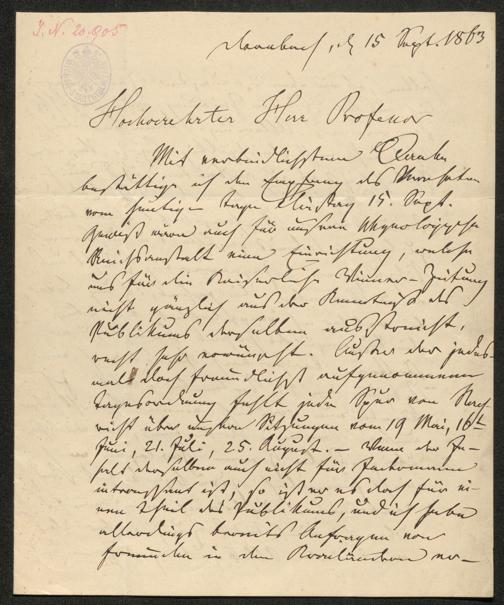 I. N. 20.905
Dornbach, d 15 Sept. 1863
Hochverehrter Herr Professor
Mit verbindlichstem Danke
bestättige ich den Empfang des
vom heutigen Tage Dienstag 15. Sept.
Gewiß wäre auch für unsere geologische
Reichsanstalt eine Einrichtung, welche
uns für die Kaiserliche Wiener-Zeitung
nicht gänzlich aus der Kenntniß des
Publikums derselben ausstreicht,
recht sehr erwünscht. Außer der jedes-
mal doch freundlichst aufgenommenen
Tagesordnung fehlt jede Spur von Nach-
richt über unsere Sitzungen vom 19 Mai, 16ten
Juni, 21. Juli, 25. August. – Wenn der In-
halt derselben auch nicht für Jedermann
interessant ist, so ist er es doch für ei-
nen Theil des Publikums, und ich habe
allerdings bereits Anfragen von
Freunden in den Kronländern er-